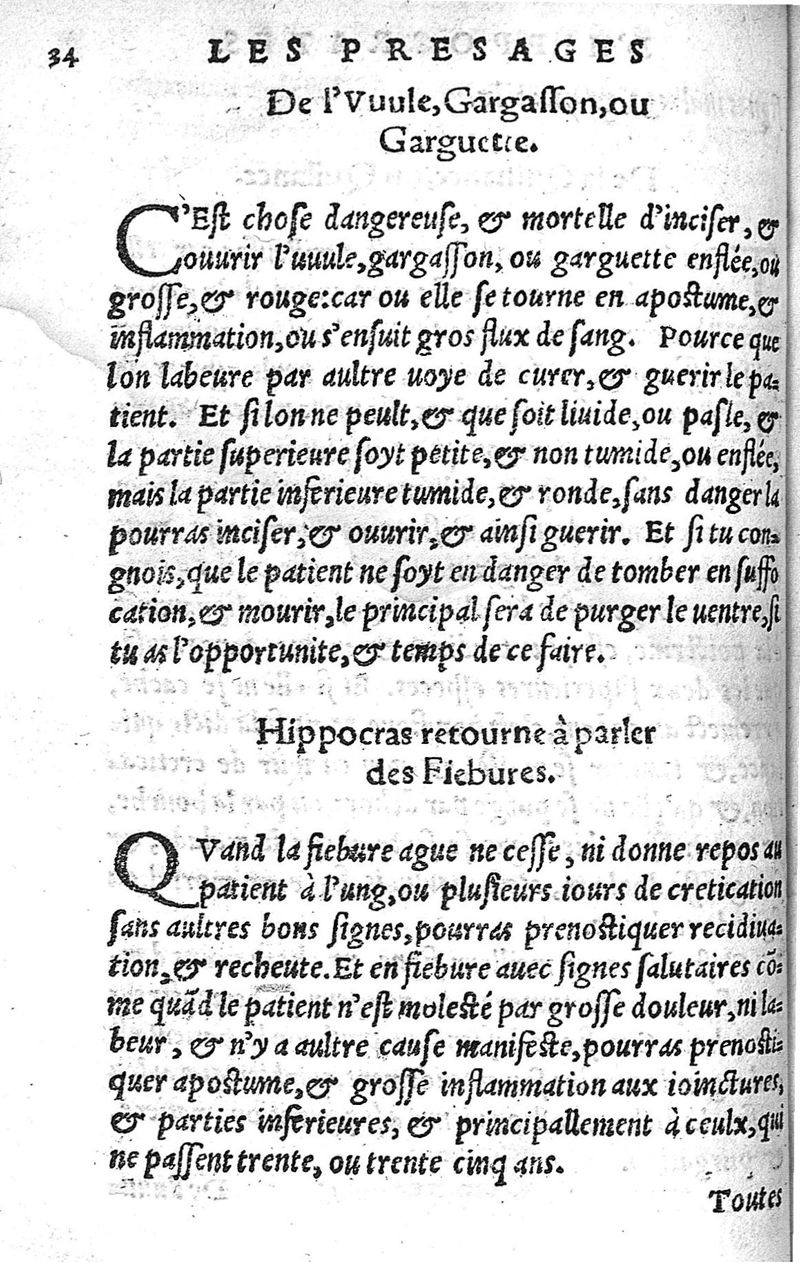 34 LES PRESAGES
De l'Vuule, Gargasson, ou
Garguette.
C'Est chose dangereuse, & mortelle d'inciser, &
ouurir l'uuule, gargasson, ou garguette enflée, ou
grosse, & rouge: car ou elle se tourne en apostume, &
inflammation, ou s'ensuit gros flux de sang. Pource que
lon labeure par aultre uoye de curer, & guerir le pa-
tient. Et si lon ne peult, & que soit liuide, ou pasle, &
la partie superieure soyt petite, & non tumide, ou enflée,
mais la partie inferieure tumide, & ronde, sans danger la
pourras inciser, & ouurir, & ainsi guerir. Et si tu con-
gnois, que le patient ne soyt en danger de tomber en suffo
cation, & mourir, le principal sera de purger le uentre, si
tu as l'opportunite, & temps de ce faire.
Hippocras retourne à parler
des Fiebures.
QVand la fiebure ague ne cesse, ni donne repos au
patient à l'ung, ou plusieurs iours de cretication
sans aultres bons signes, pourras prenostiquer recidiua-
tion, & recheute. Et en fiebure auec signes salutaires cõ-
me quãd le patient n'est molesté par grosse douleur, ni la-
beur, & n'y a aultre cause manifeste, pourras prenosti-
quer apostume, & grosse inflammation aux ioinctures,
& parties inferieures, & principallement à ceulx, qui
ne passent trente, ou trente cinq ans.
Toutes